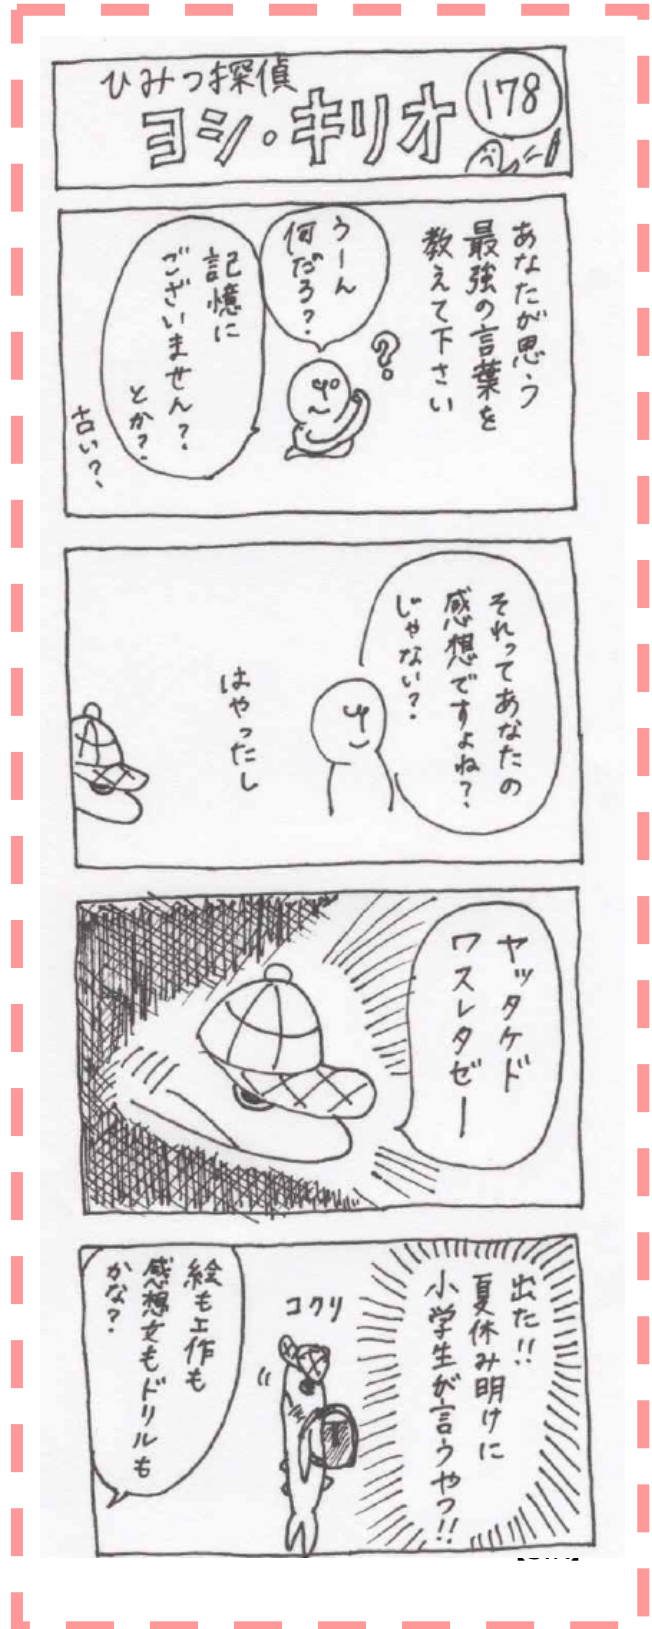 ひみつ探偵
ヨシ・キリオ
178
あなたが思う
最強の言葉を
教えて下さい
うーん
何だろ?
?
記憶に
ございません?
とか?
古い?、
それってあなたの
感想ですよね?
じゃない?
はやったし
ヤッタケド
ワスレタゼー
出た!!
夏休み明けに
小学生が言うやつ!!
コクリ
絵も工作も
感想文もドリルも
かな?